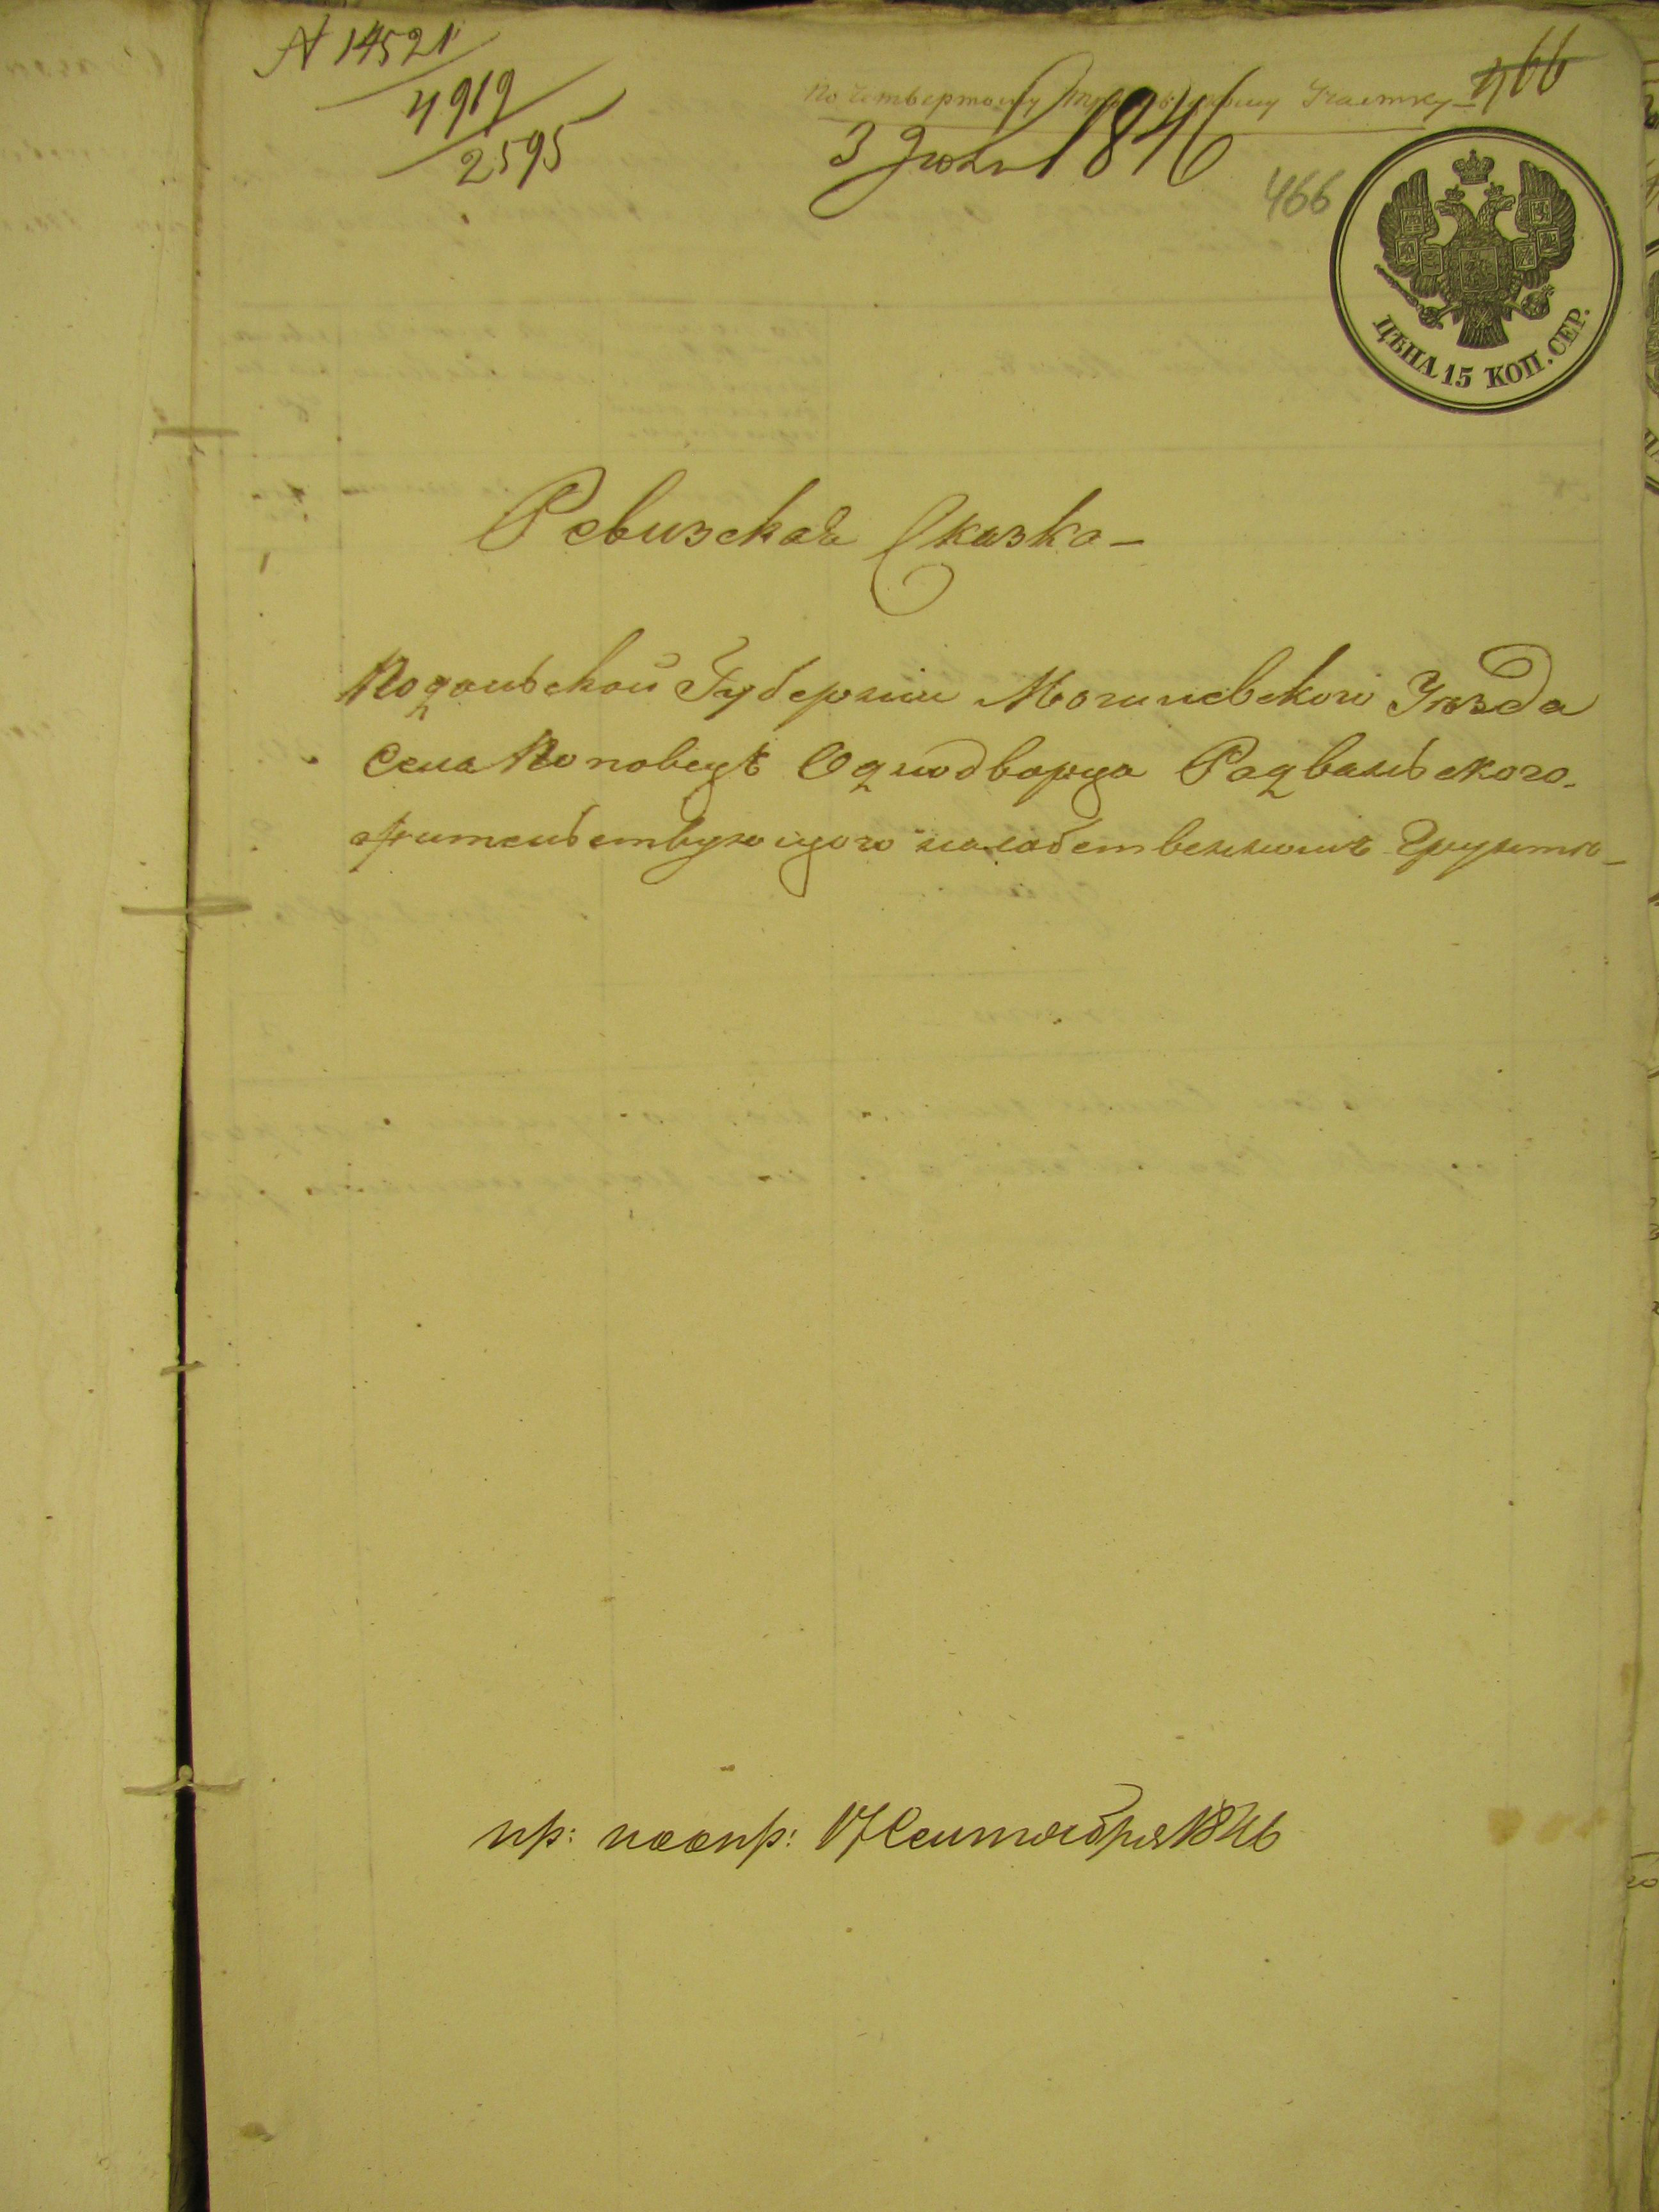 N 14521
4919
2595
По четвертому Участку
466
3 Июля 1846
466
ЦѢНА 15 КОП. СЕР.
Ревизская Сказка
Подольской Губернии Могилевского Уѣзда
Села Поповецъ Однодворца Радвальского
жительствующого насобственномъ Грунтѣ
пр: 17 Сентября 1846